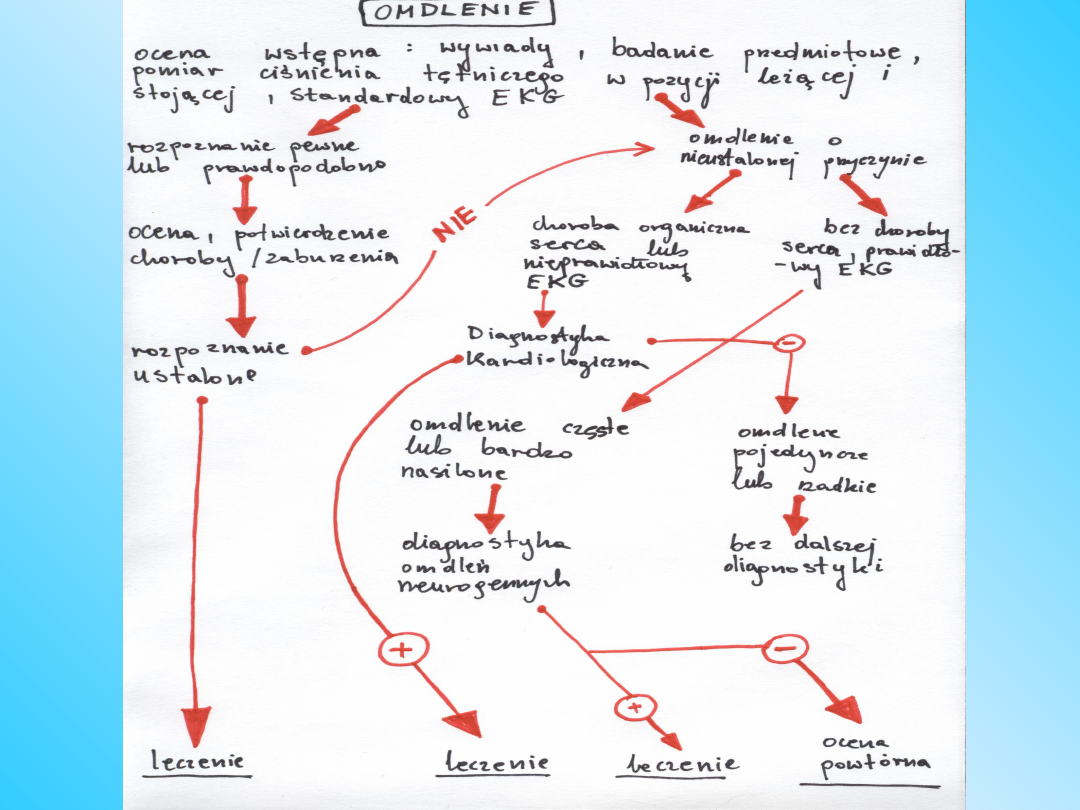 OMDLENIE
ocena wstępna : wywiady , badanie przedmiotowe ,
pomiar ciśnienia tętniczego w pozycji leżącej i
stojącej , standardowy EKG
rozpoznanie pewne
lub prawdopodobno
omdlenie o
nieustalonej przyczynie
ocena , potwierdzenie
choroby / zaburzenia
NIE
choroba organiczna
serca lub
nieprawidłowy
EKG
bez choroby
serca , prawidło-
-wy EKG
rozpoznanie
ustalone
Diagnostyka
Kardiologiczna
-
omdlenie częste
lub bardzo
nasilone
omdlenie
pojedyncze
lub rzadkie
diagnostyka
omdleń
neurogennych
bez dalszej
diagnostyki
+
-
+
leczenie
leczenie
leczenie
ocena
powtórna